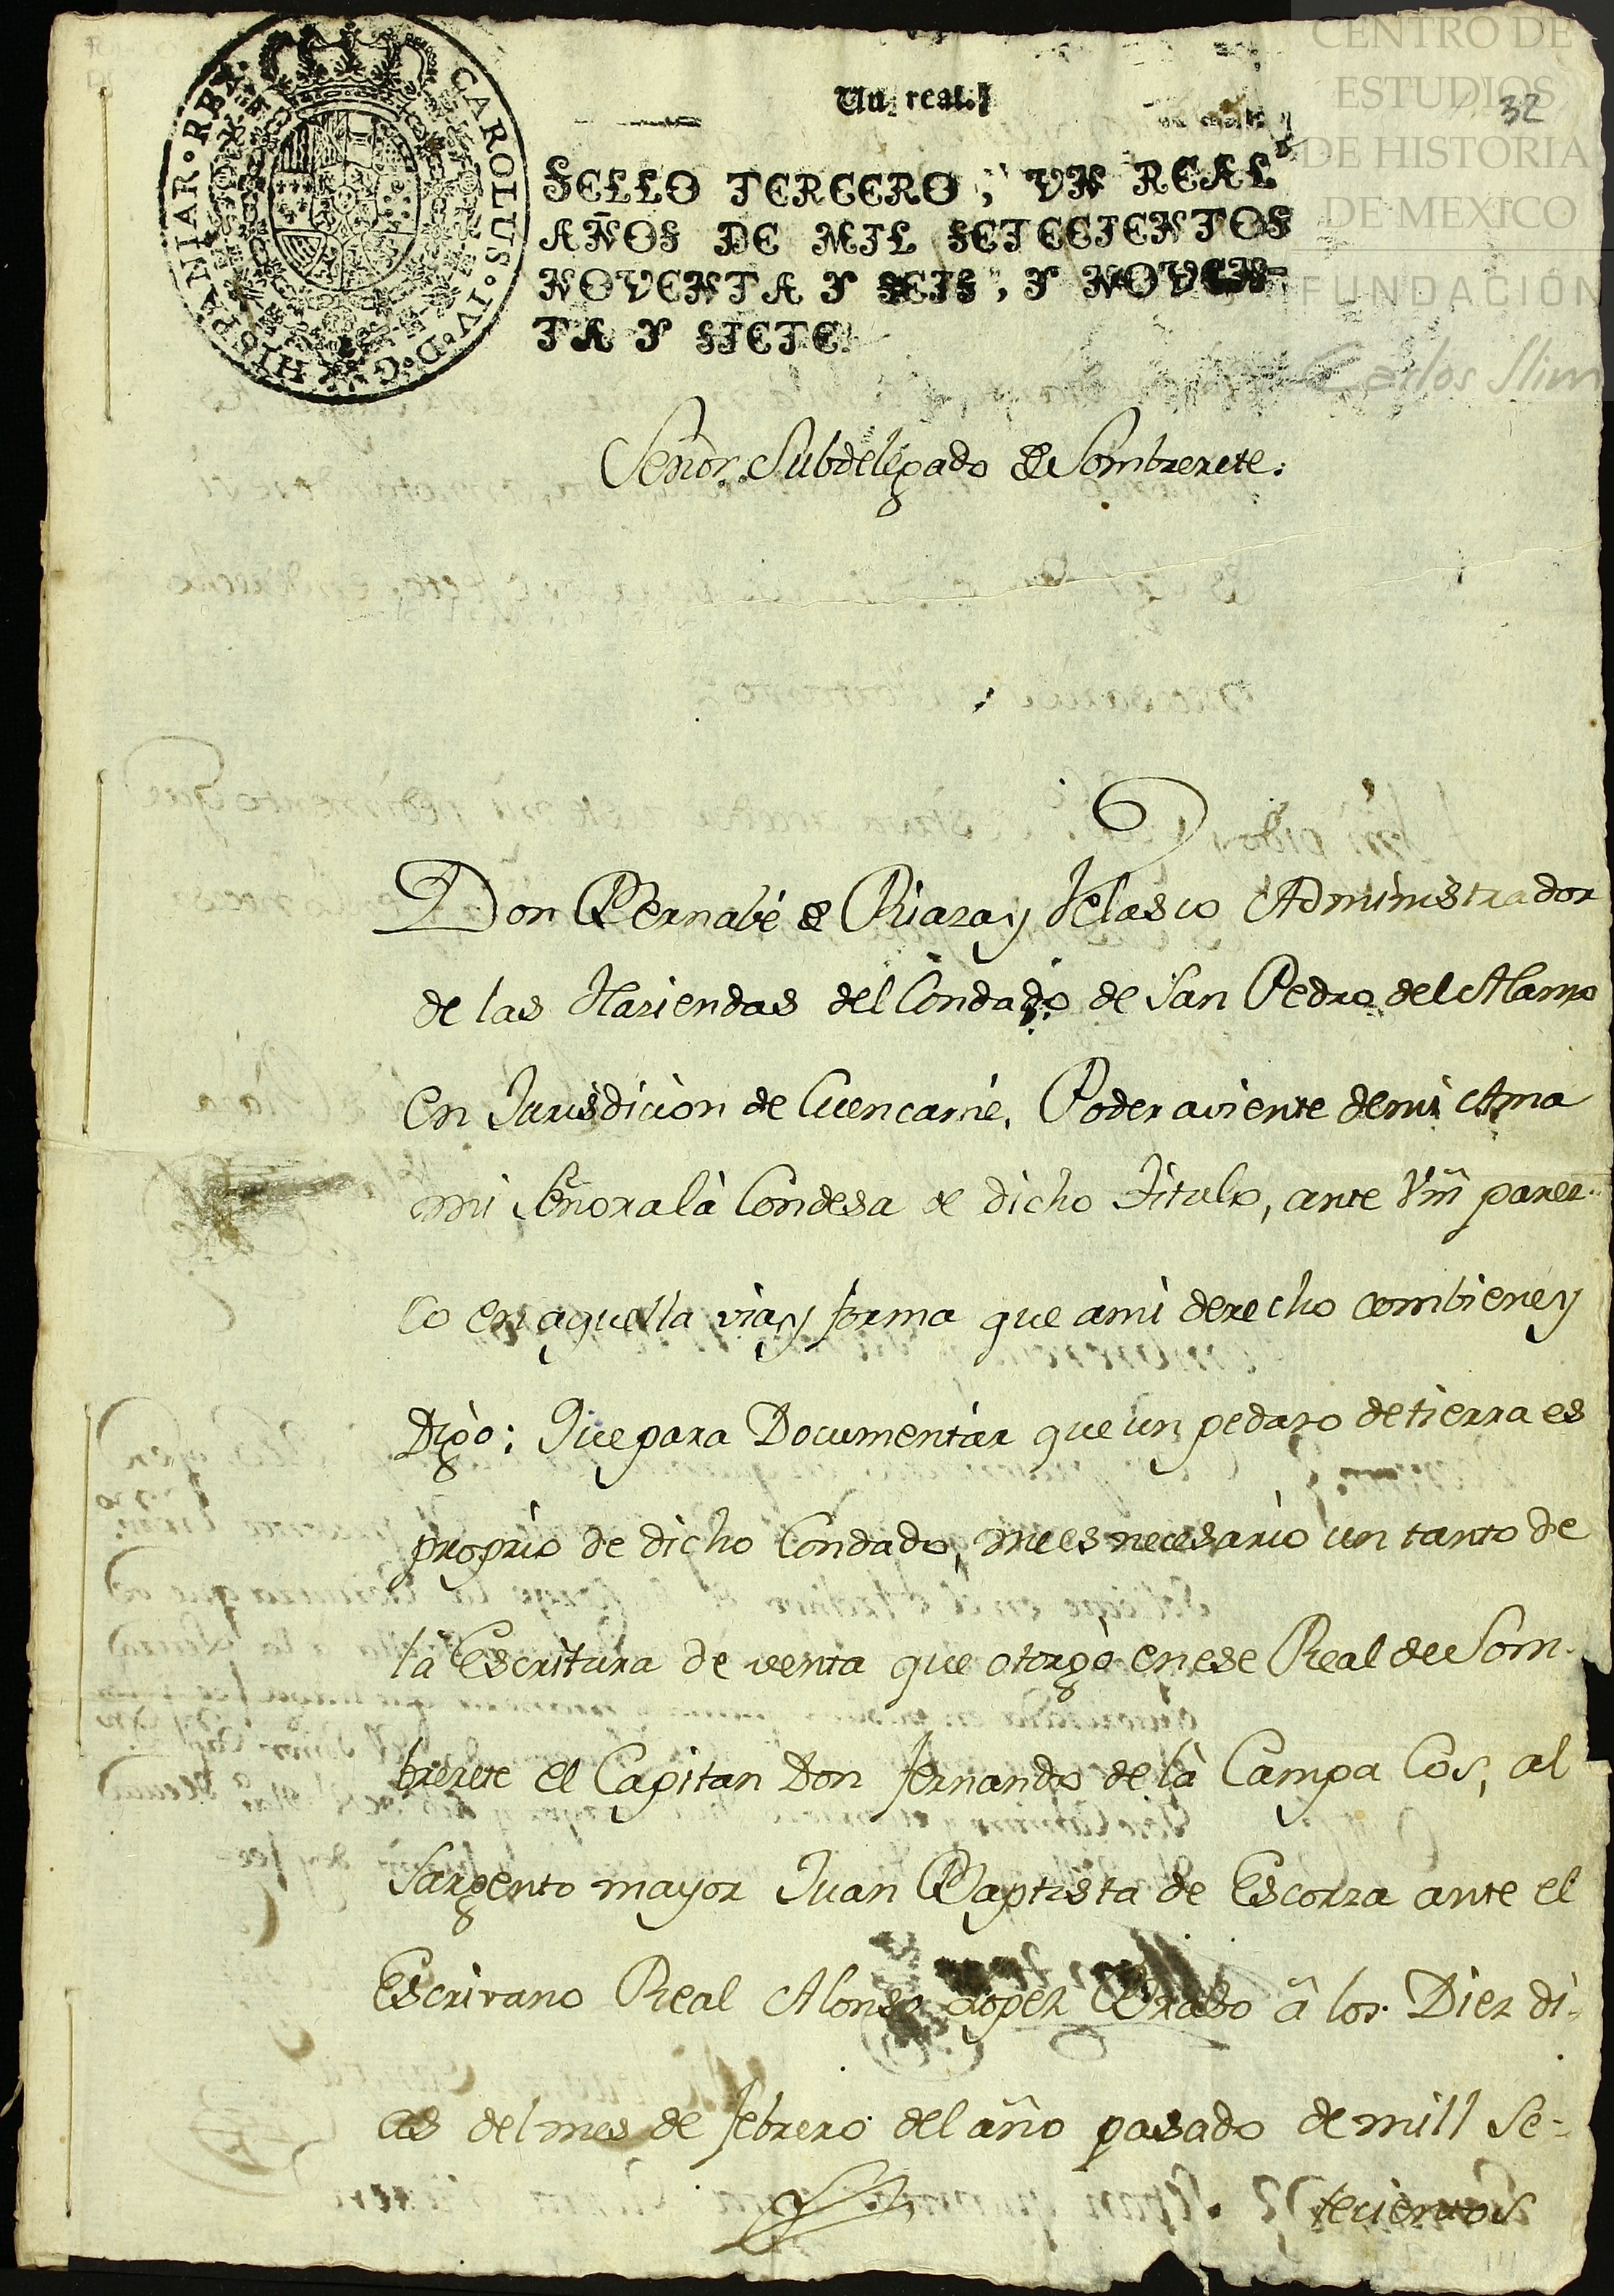 CENTRO DE
ESTUDIOS
DE HISTORIA
DE MEXICO
FUNDACIÓN
Carlos Slim
32
CAROLUS·IV·D·G·HISPANIAR·REX·
Un real.
SELLO TERCERO, VN REAL
AÑOS DE MIL SETECIENTOS
NOVENTA Y SEIS, Y NOVEN-
TA Y SIETE.
Señor Subdelegado de Sombrerete:
Don Bernabé de Riaza y Velasco Administrador
de las Haziendas del Condado de San Pedro del Alamo
en Jurisdicion de Cuencamé, Poderaviente de mi Ama
mi Señora la Condesa de dicho Titulo, ante Vm̃ parez-
co en aquella via y forma que a mi derecho combiene y
Digo: Que para Documentar que un pedazo de tierra es
proprio de dicho Condado, me es necesario un tanto de
la Escritura de venta que otorgó en ese Real de Som-
brerete el Capitan Don Fernando de la Campa Cos, al
Sargento mayor Juan Baptista de Escorza ante el
Escrivano Real Alonso Lopez Brabo â los Diez di-
as del mes de febrero del año pasado de mill se-
tecientos